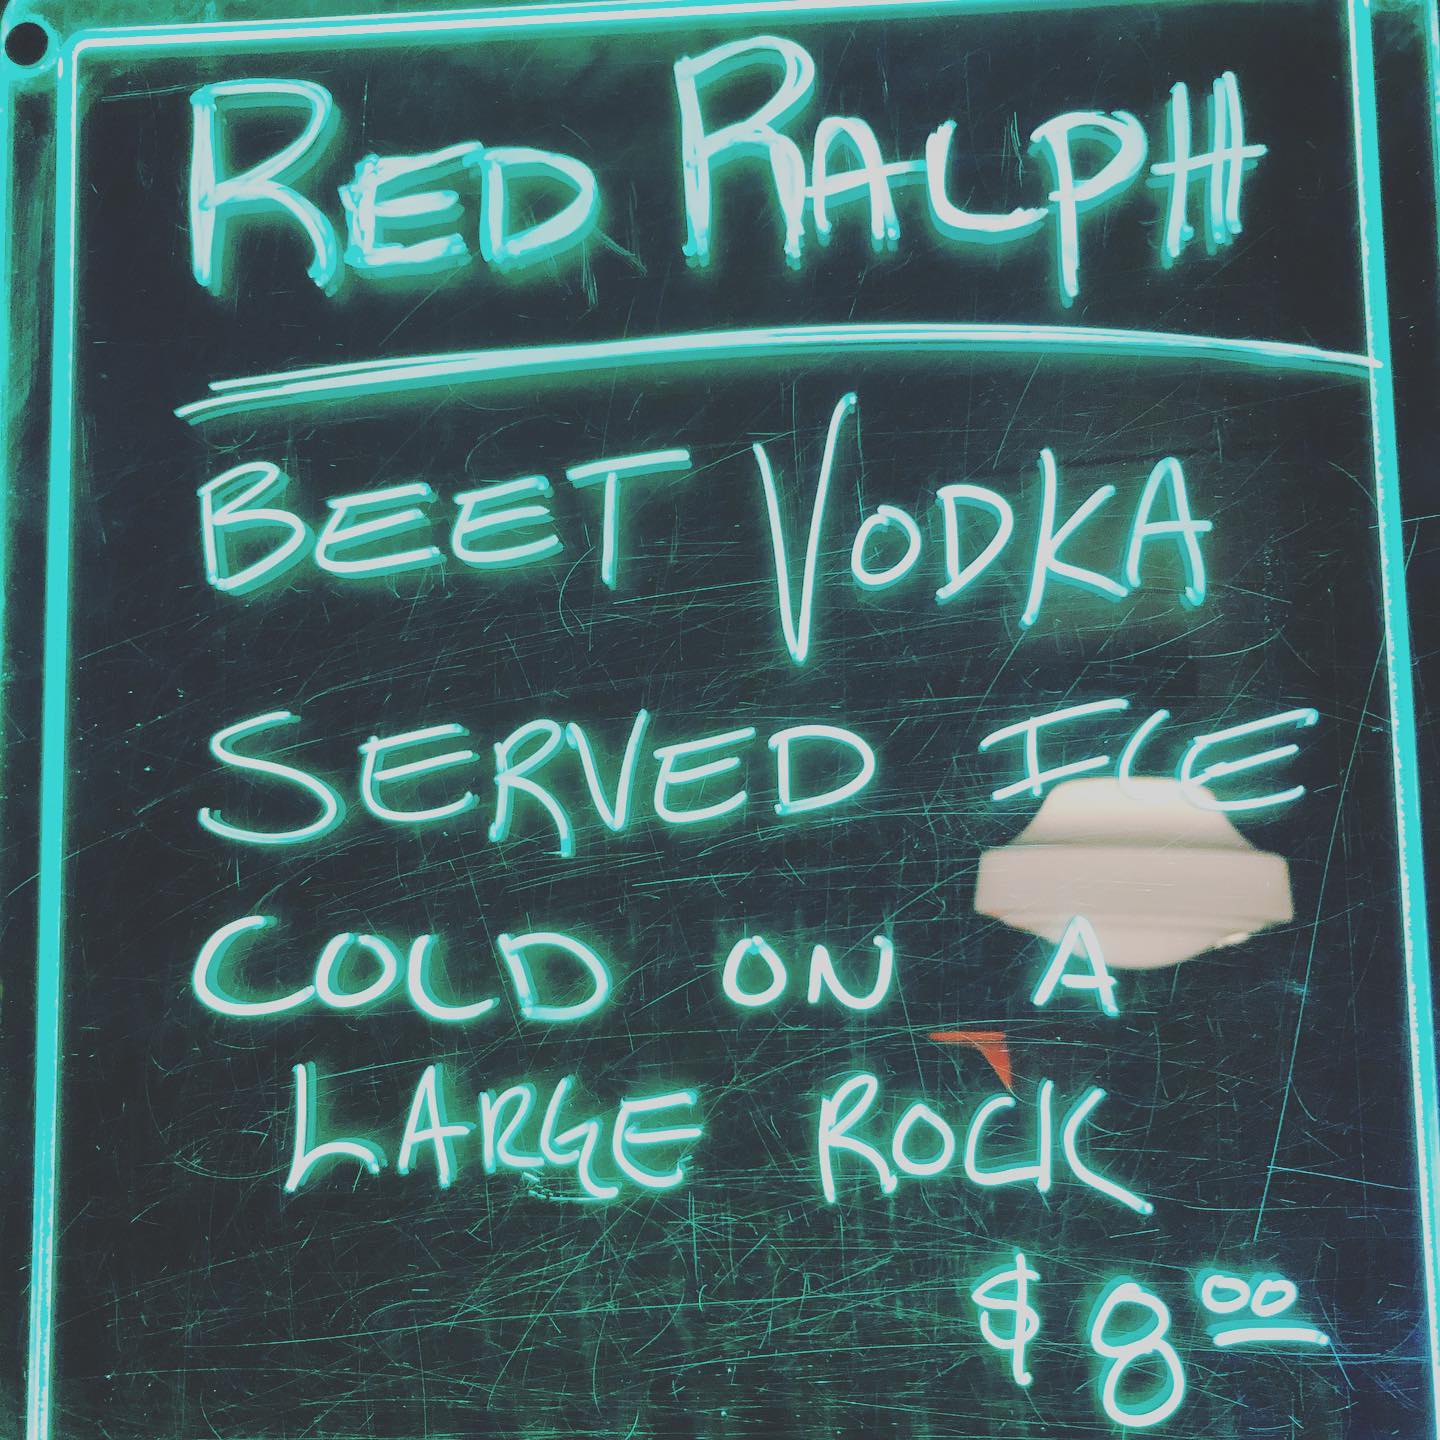 RED RALPH
BEET VODKA
SERVED ICE
COLD ON A
LARGE ROCK
$8.00